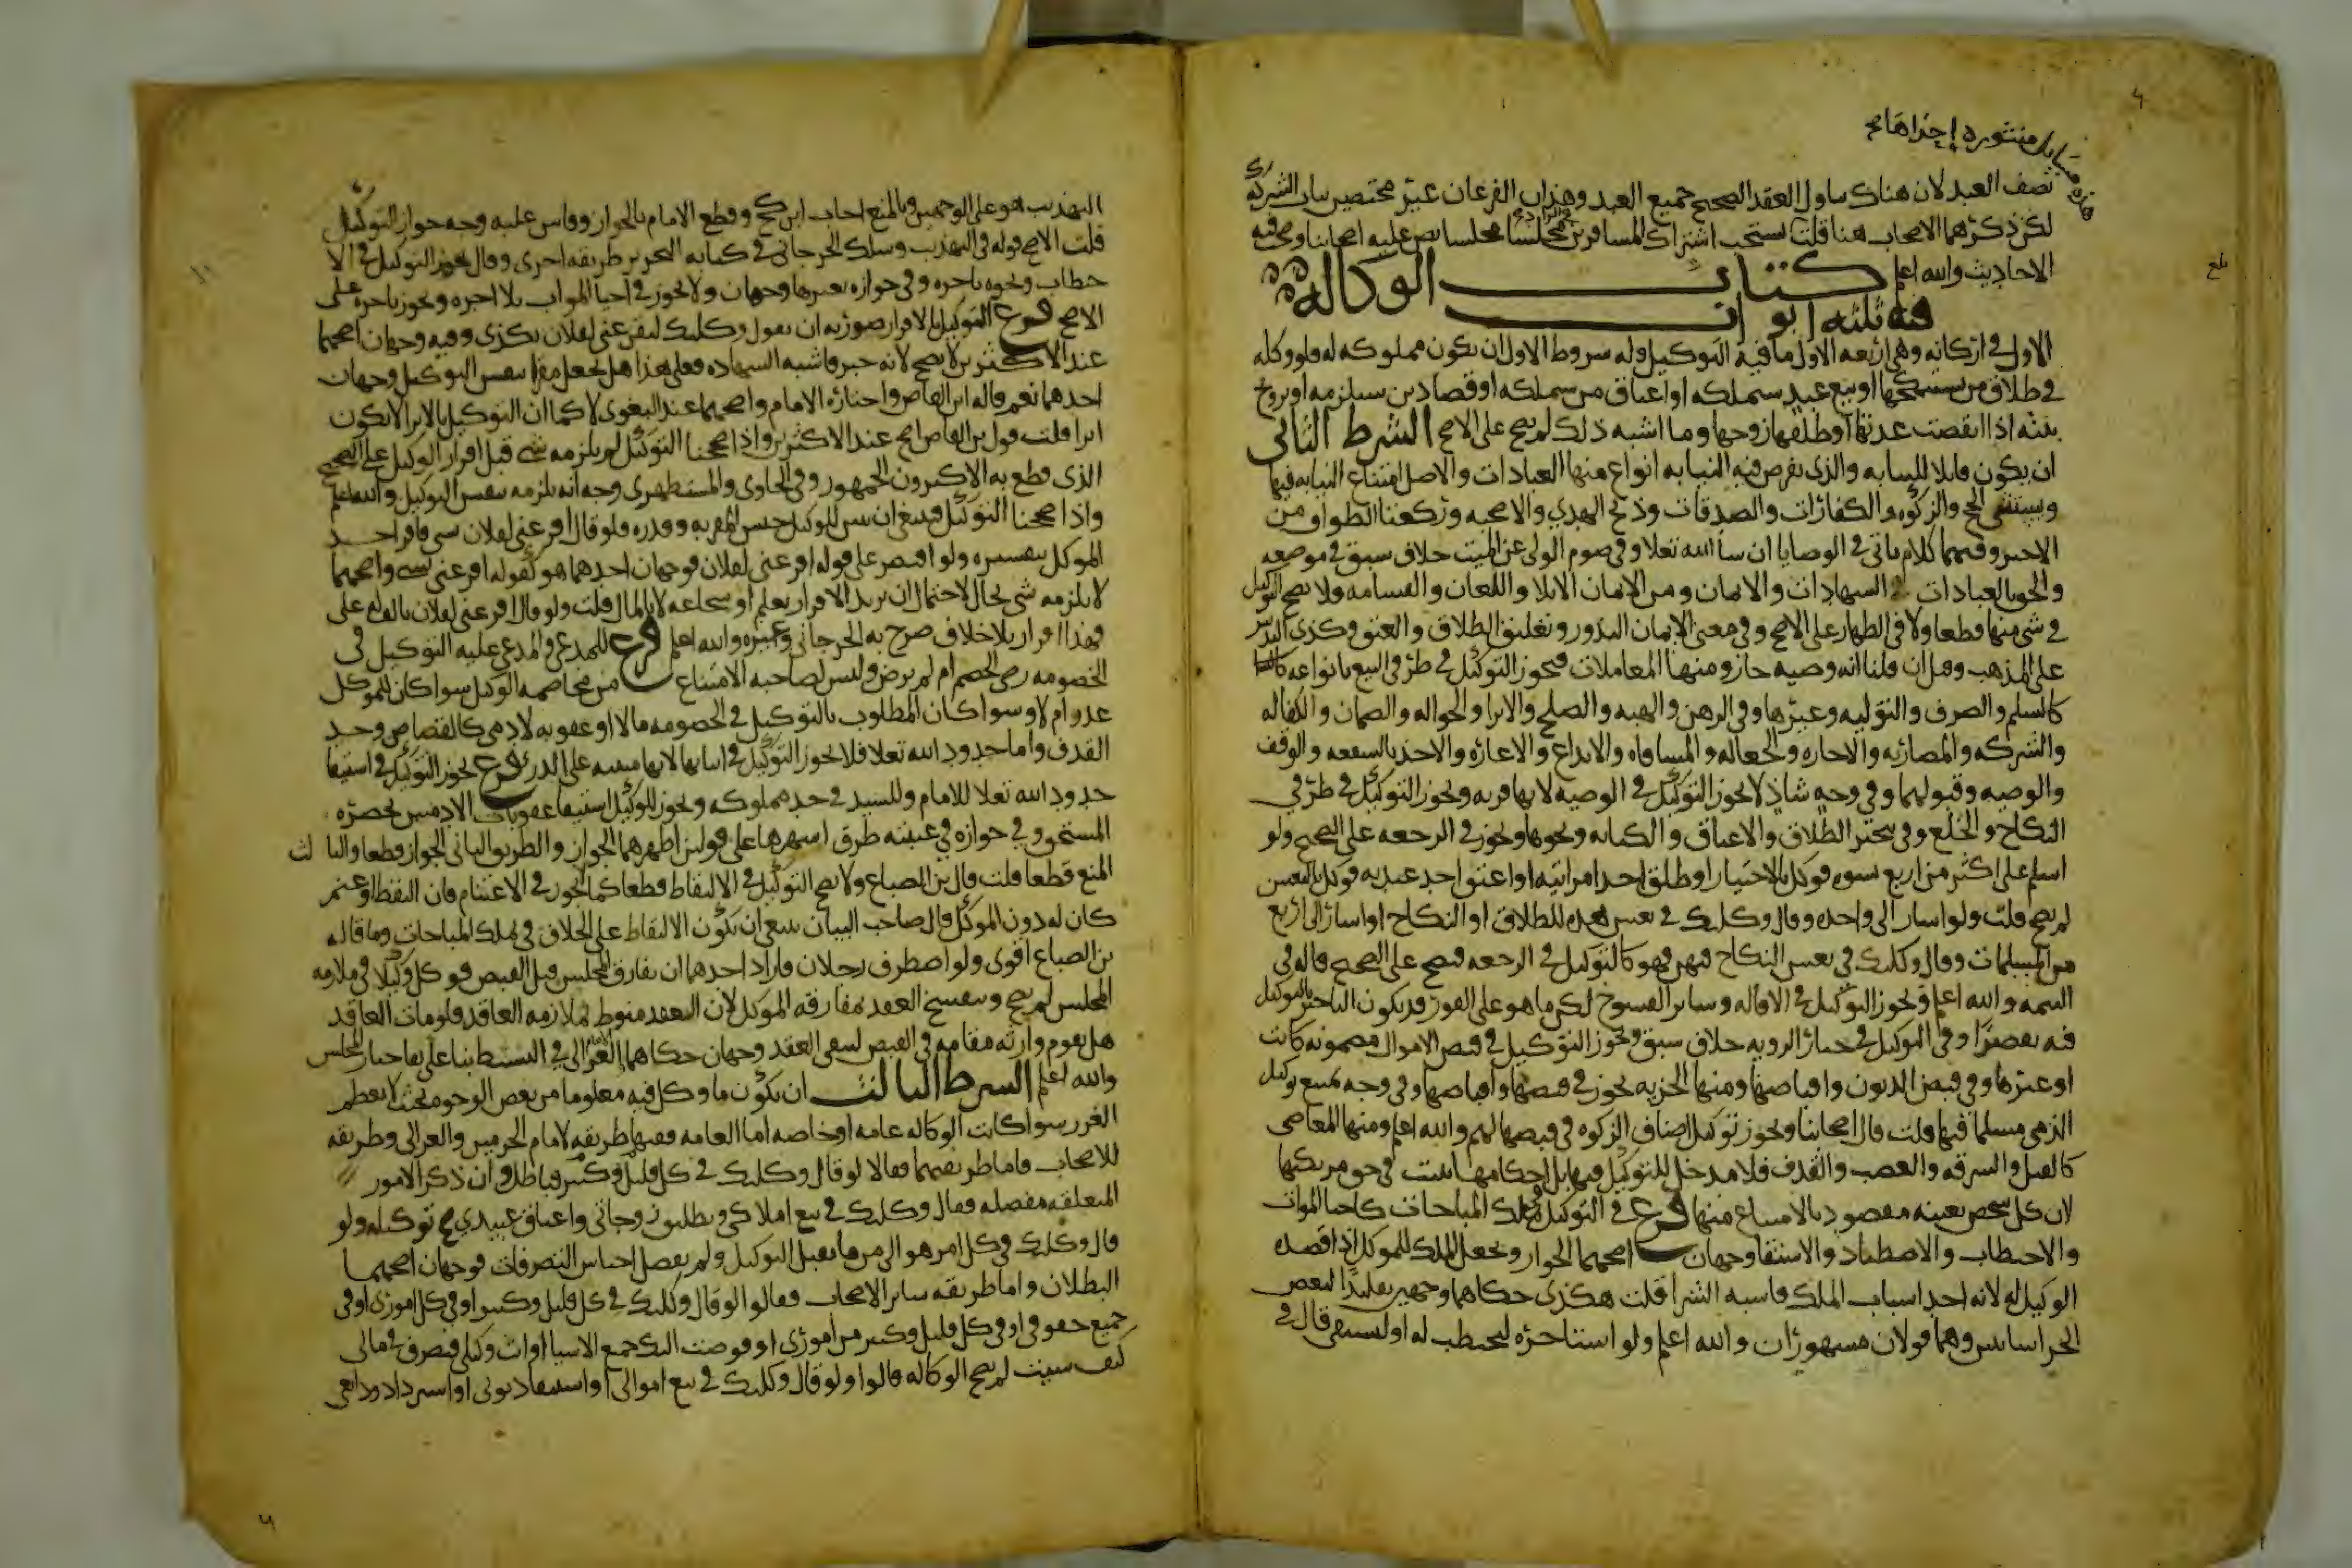 مسايل منثوره احداها
نصف العبد لان هناك تناول العقد الصحيح جميع العبد وهذان الفرعان غير مختصين بباب الشركه
لكن ذكرهما الاصحاب هنا قلت يستحب اشتراك المسافرين في الزاد مجلسا مجلسا نص عليه اصحابنا وصحت فيه
الاحاديث والله اعلم كتاب الوكاله
فيه ثلثه ابواب
الاول في اركانه وهي اربعه الاول ما فيه التوكيل وله شروط الاول ان يكون مملوكه له فلو وكله
في طلاق من سينكحها او بيع عبد سيملكه او اعتاق من سيملكه او قضا دين سيلزمه او تزويج
بنته اذا انقضت عدتها او طلقها زوجها وما اشبه ذلك لم يصح على الاصح الشرط الثاني
ان يكون قابلا للنيابه والذي نفرض فيه النيابه انواع منها العبادات والاصل امتناع النيابه فيها
ويستثنى الحج والزكوه والكفارات والصدقات وذبح الهدي والاضحيه وركعتا الطواف من
الاجير وفيهما كلام ياتي في الوصايا ان شا الله تعلا وفي صوم الولي عن الميت خلاف سبق في موضعه
والحق بالعبادات الشهادات والايمان ومن الايمان الايلا واللعان والقسامه ولا يصح التوكيل
في شي منها قطعا ولا في الظهار على الاصح وفي معنى الايمان النذور وتعليق الطلاق والعتق وكذى التدبير
على المذهب وقيل ان قلنا انه وصيه جاز ومنها المعاملات فيجوز التوكيل في طرفي البيع بانواعه
كالسلم والصرف والتوليه وغيرها وفي الرهن والهبه والصلح والابرا والحواله والضمان والكفاله
والشركه والمضاربه والاجاره والجعاله والمساقاه والايداع والاعاره والاخذ بالشفعه والوقف
والوصيه وقبولهما وفي وجه شاذ لا يجوز التوكيل في الوصيه لانها قربه ويجوز التوكيل في طرفي
النكاح والخلع وفي تنجيز الطلاق والاعتاق والكتابه ونحوها ويجوز في الرجعه على الصحيح ولو
اسلم على اكثر من اربع نسوه فوكل بالاختيار او طلق احد امراتيه او اعتق احد عبديه فوكل بالتعيين
لم يصح قلت ولو اشار الى واحده وقال وكلتك في تعيين هذه للطلاق او النكاح او اشار الى اربع
من المسلمات وقال وكلتك في تعيين النكاح فيهن فهو كالتوكيل في الرجعه فيصح على الصحيح قاله في
التتمه والله اعلم ويجوز التوكيل في الاقاله وساير الفسوخ لكن ما هو على الفور قد يكون التاخير بالتوكيل
فيه تقصيرا وفي التوكيل في خيار الرويه خلاف سبق ويجوز التوكيل في قبض الاموال مضمونه كانت
او غيرها وفي قبض الديون واقباضها ومنها الجزيه يجوز في قبضها واقباضها وفي وجه يمتنع توكيل
الذمي مسلما فيها قلت قال اصحابنا ويجوز توكيل اصناف الزكوه في قبضها لهم والله اعلم ومنها المعاصي
كالقتل والسرقه والغصب والقذف فلا مدخل للتوكيل فيها بل احكامها تثبت في حق مرتكبها
لان كل شخص بعينه مقصود بالامتناع منها فرع في التوكيل في تملك المباحات كاحيا الموات
والاحتطاب والاصطياد والاستقا وجهان اصحهما الجواز ويحصل الملك للموكل اذا قصده
الوكيل له لانه احد اسباب الملك فاشبه الشرا قلت هكذى حكاهما وجهين تقليدا لبعض
الخراسانيين وهما قولان مشهوران والله اعلم ولو استاجره ليحتطب له او ليستقي قال في
التهذيب هو على الوجهين وبالمنع اجاب ابن كج وقطع الامام بالجواز وقاس عليه وجه جواز التوكيل
قلت الاصح قوله في التهذيب وسلك الجرجاني في كتابه التحرير طريقه اخرى وقال يجوز التوكيل في الا
حتطاب ونحوه باجره وفي جوازه بغيرها وجهان ولا يجوز في احيا الموات بلا اجره ويجوز باجره على
الاصح فرع التوكيل بالاقرار صورته ان يقول وكلتك لتقر عني لفلان بكذى وفيه وجهان اصحهما
عند الاكثرين لا يصح لانه خبر فاشبه الشهاده فعلى هذا هل يجعل مقرا بنفس التوكيل وجهان
احدهما نعم قاله ابن القاص واختاره الامام واصحهما عند البغوي لا كما ان التوكيل بالابرا لا يكون
ابرا قلت قول بن القاص اصح عند الاكثرين واذا صححنا التوكيل لم يلزمه شي قبل اقرار الوكيل على الصحيح
الذي قطع به الاكثرون الجمهور وفي الحاوي والمستظهري وجه انه يلزمه بنفس التوكيل والله اعلم
واذا صححنا التوكيل فينبغي ان يبين للوكيل جنس المقر به وقدره فلو قال اقر عني لفلان بشي فاقر اخذ
الموكل بتفسيره ولو اقتصر على قوله اقر عني لفلان فوجهان احدهما هو كقوله اقر عني بشي واصحهما
لا يلزمه شي بحال لاحتمال ان يريد الاقرار بعلم او شجاعه لا بالمال قلت ولو قال اقر عني لفلان بالف له علي
فهذا اقرار بلا خلاف صرح به الجرجاني وغيره والله اعلم فرع للمدعي والمدعى عليه التوكيل في
الخصومه رضي الخصم ام لم يرض وليس لصاحبه الامتناع من مخاصمه الوكيل سوا كان للموكل
عذر ام لا وسوا كان المطلوب بالتوكيل في الخصومه مالا او عقوبه لادمي كالقصاص وحد
القذف واما حدود الله تعلا فلا يجوز التوكيل في اثباتها لانها مبنيه على الدرئ فرع يجوز التوكيل في استيفا
حدود الله تعلا للامام وللسيد في حد مملوكه ويجوز للوكيل استيفا عقوبات الادميين بحضره
المستحق وفي جوازه في غيبته طرق اشهرها على قولين اظهرهما الجواز والطريق الثاني الجواز قطعا والثا لث
المنع قطعا قلت قال بن الصباغ ولا يصح التوكيل في الالتقاط قطعا كما لا يجوز في الاغتنام فان التقط او غنم
كان له دون الموكل قال صاحب البيان ينبغي ان يكون الالتقاط على الخلاف في تملك المباحات وما قاله
بن الصباغ اقوى ولو اصطرف رجلان فاراد احدهما ان يفارق المجلس قبل القبض فوكل وكيلا في ملازمه
المجلس لم يصح وينفسخ العقد بمفارقه الموكل لان العقد منوط بملازمه العاقد فلو مات العاقد
هل يقوم وارثه مقامه في القبض ليبقى العقد وجهان حكاهما الغزالي في البسيط بناعلى بقا خيار المجلس
والله اعلم الشرط الثالث ان يكون ما وكل فيه معلوما من بعض الوجوه بحيث لا يعظم
الغرر سوا كانت الوكاله عامه او خاصه اما العامه ففيها طريقه لامام الحرمين والغزالي وطريقه
للاصحاب فاما طريقتهما فقالا لو قال وكلتك في كل قليل وكثير فباطل وان ذكر الامور
المتعلقه مفصله فقال وكلتك في بيع املاكي وتطليق زوجاتي واعتاق عبيدي صح توكيله ولو
قال وكلتك في كل امر هو الي مما يقبل التوكيل ولم يفصل اجناس التصرفات فوجهان اصحهما
البطلان واما طريقه ساير الاصحاب فقالوا لو قال وكلتك في كل قليل وكثير او في كل اموري او في
جميع حقوقي او في كل قليل وكثير من اموري او فوضت اليك جميع الاشيا او انت وكيلي فتصرف في مالي
كيف شيت لم يصح الوكاله قالوا ولو قال وكلتك في بيع اموالي او استيفا ديوني او استرداد ودايعي